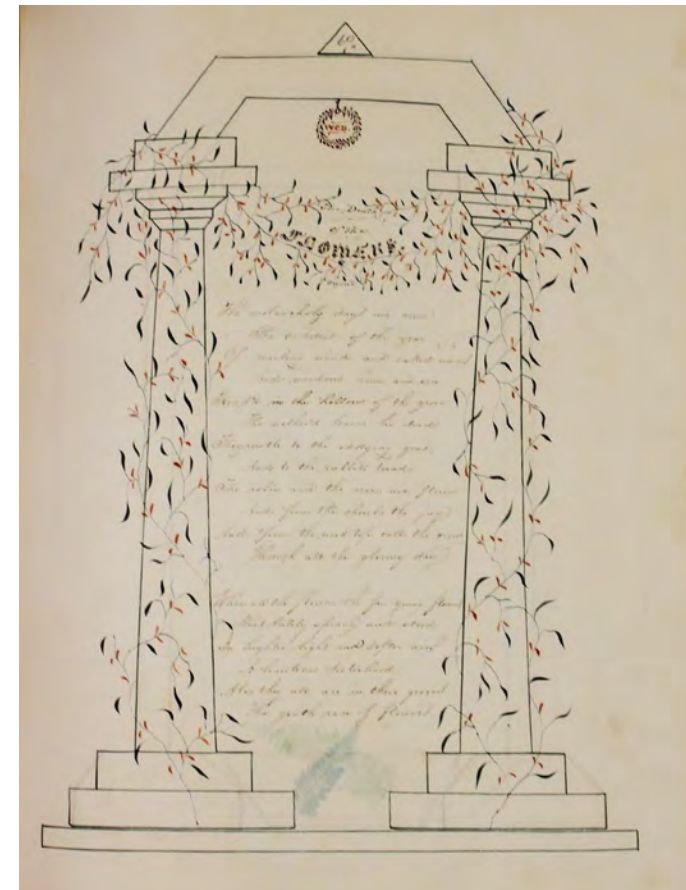 The Death
of the
FLOWERS.
The melancholy days are come
The saddest of the year
Of wailing winds and naked woods
And meadows brown and sear
Heap'd in the hollows of the grove
The withered leaves lie dead
They rustle to the eddying gust,
And to the rabbits tread
The robin and the wren are flown
And from the shrubs the jay
And from the wood top calls the crow
Through all the gloomy day
Where are the flowers the fair young flowers
That lately sprang and stood
In brighter light and softer airs
A beauteous sisterhood
Alas they all are in their graves
The gentle race of flowers